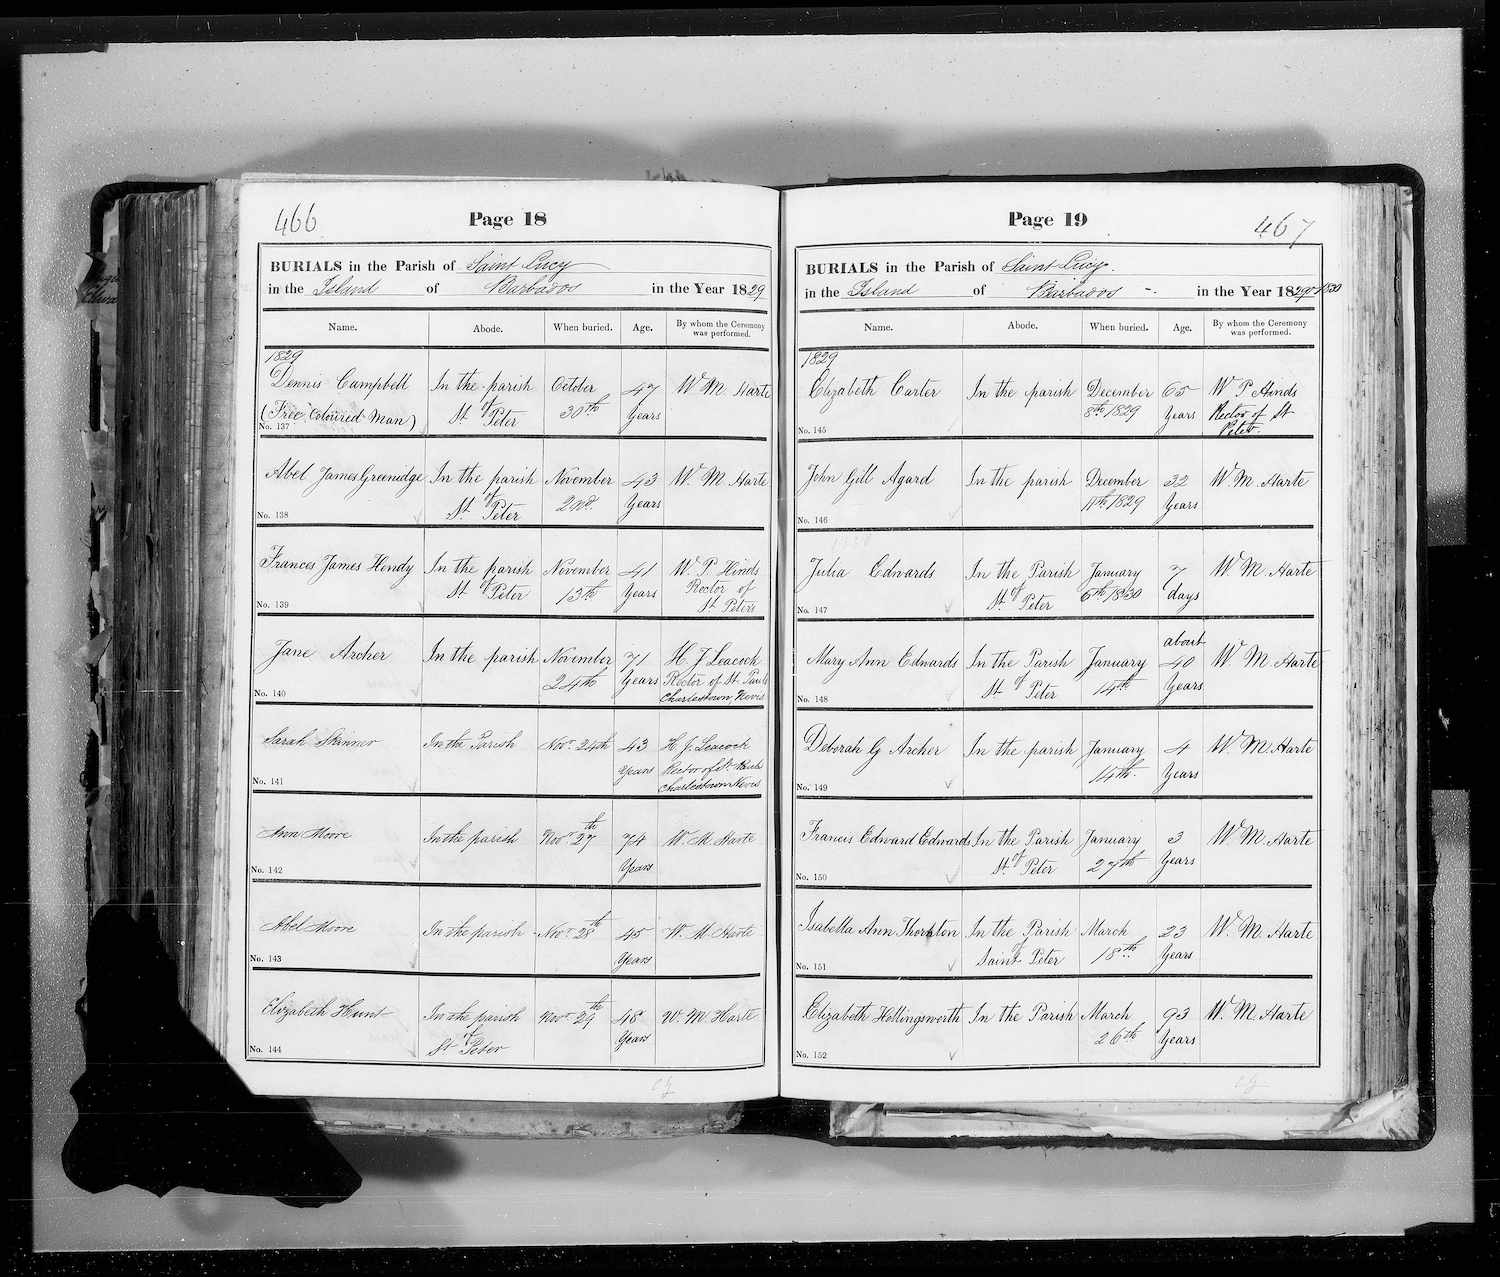 466
Page 18
BURIALS in the Parish of Saint Lucy
in the Island of Barbados in the Year 1829
Name. Abode. When buried. Age. By whom the Ceremony was performed.
1829
Dennis Campbell In the parish October 47 W. M. Harte
(Free Coloured Man) of St. Peter 30th Years
No. 137
Abel James Greenidge In the parish November 43 W. M. Harte
of St. Peter 2nd. Years
No. 138
Frances James Hendy In the parish November 41 W. P. Hinds
of St. Peter 13th Years Rector of
No. 139 St Peters
Jane Archer In the parish November 71 H. J. Leacock
24th Years Rector of St. Pauls
No. 140 Charlestown, Nevis
Sarah Skinner In the Parish Novr. 24th 43 H. J. Leacock
Years Rector of St. Pauls
No. 141 Charlestown Nevis
Ann Moore In the parish Novr 27th 74 W. M. Harte
No. 142 Years
Abel Moore In the parish Novr. 28th 45 W. M. Harte
No. 143 Years
Elizabeth Hunt In the parish Novr 29th 48 W. M. Harte
of St Peter Years
No. 144
467
Page 19
BURIALS in the Parish of Saint Lucy.
in the Island of Barbados - in the Year 1829-1830
Name. Abode. When buried. Age. By whom the Ceremony was performed.
1829
Elizabeth Carter In the parish December 65 W. P. Hinds
8th 1829 Years Rector of St
No. 145 Peter.
John Gill Agard In the parish December 32 W. M. Harte
1829 Years
No. 146
Julia Edwards In the Parish January 7 W. M. Harte
of St. Peter 6th 1830 days
No. 147
Mary Ann Edwards In the Parish January about 40 W. M. Harte
of St. Peter 14th Years
No. 148
Deborah G Archer In the parish January 4 W. M. Harte
14th. Years
No. 149
Francis Edward Edwards In the Parish January 3 W. M. Harte
of St. Peter 27th Years
No. 150
Isabella Ann Thornton In the Parish March 23 W. M. Harte
of Saint Peter 18th. Years
No. 151
Elizabeth Hollingsworth In the Parish March 93 W. M. Harte
26th Years
No. 152